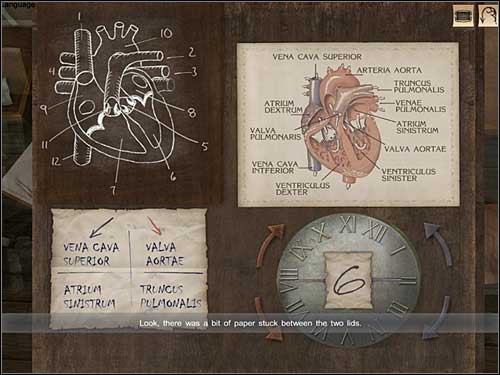 Language
1
10
2
3
4
9
8
11
5
12
7
6
VENA CAVA SUPERIOR
ARTERIA AORTA
TRUNCUS
PULMONALIS
ATRIUM
DEXTRUM
VENAE
PULMONALIS
ATRIUM
SINISTRUM
VALVA
PULMONARIS
VALVA AORTAE
VENA CAVA
INTFERIOR
VENTRICULUS
SINISTER
VENTRICULUS
DEXTER
VENA CAVA
SUPERIOR
VALVA
AORTAE
ATRIUM
SINISTRUM
TRUNCUS
PULMONALIS
XII
I
II
III
IIII
V
VI
VII
VIII
IX
X
XI
6
Look, there was a bit of paper stuck between the two lids.